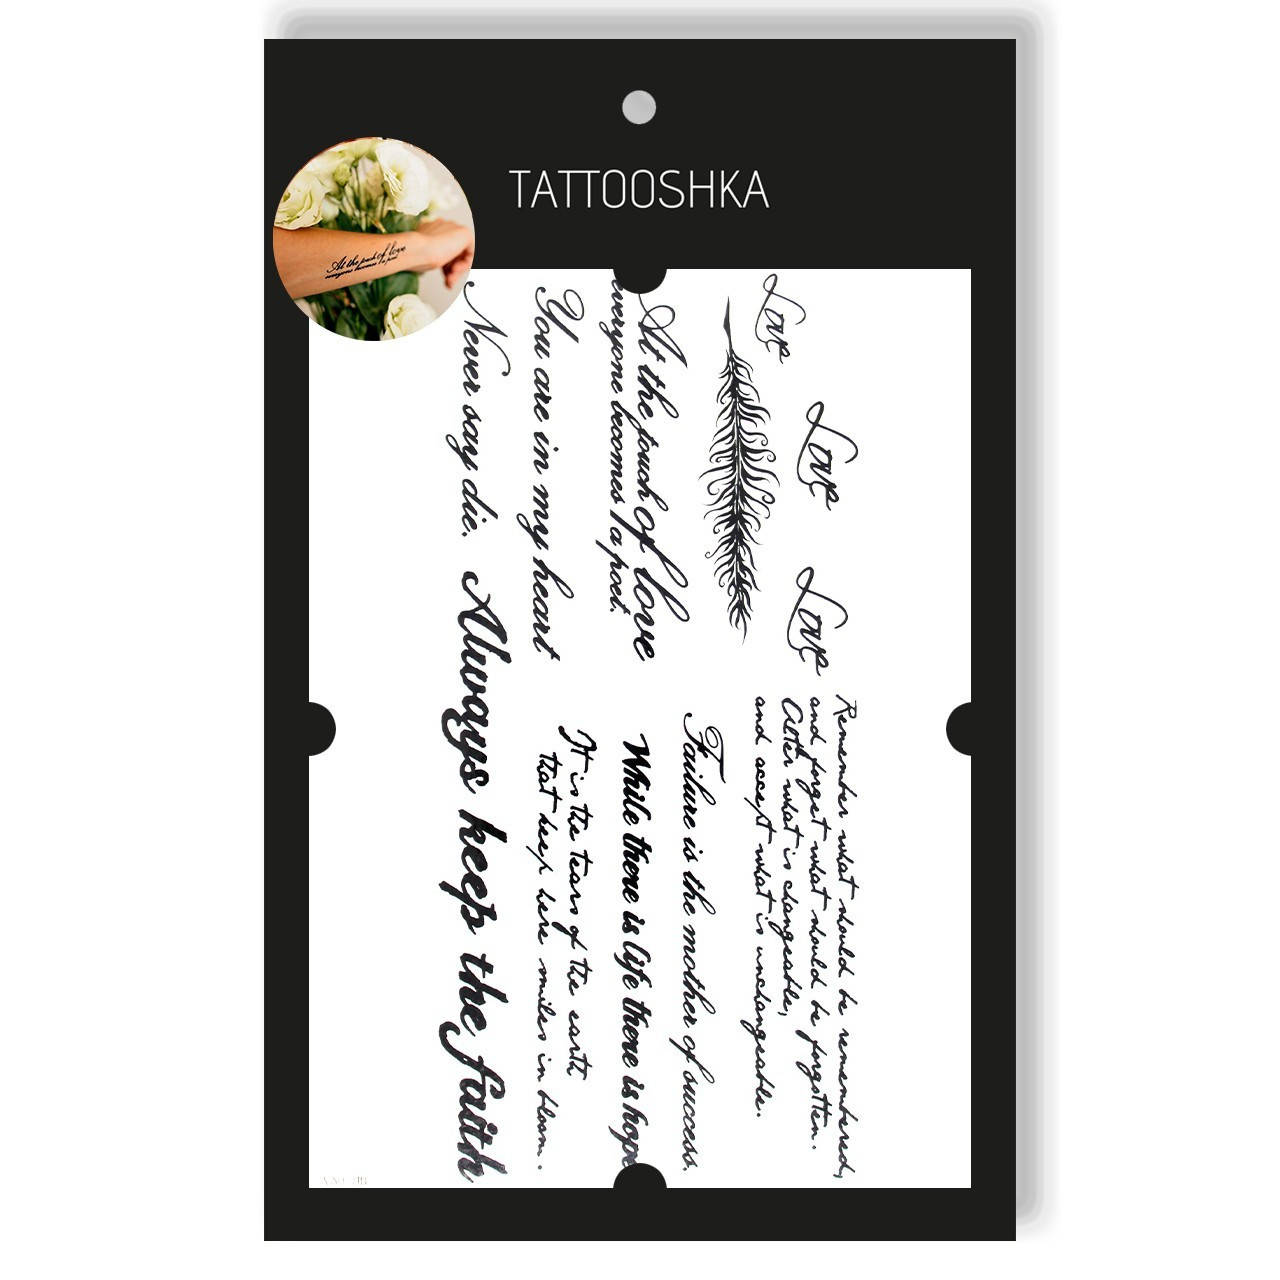 TATTOOSHKA
At the touch of love
everyone becomes a poet
Love
Love
Love
Remember what should be remembered,
and forget what should be forgotten.
Alter what is changeable,
and accept what is unchangeable.
Failure is the mother of success.
At the touch of love
everyone becomes a poet.
While there is life there is hope
You are in my heart
It is the tears of the earth
that keep here smiles in bloom.
Never say die.
Always keep the faith